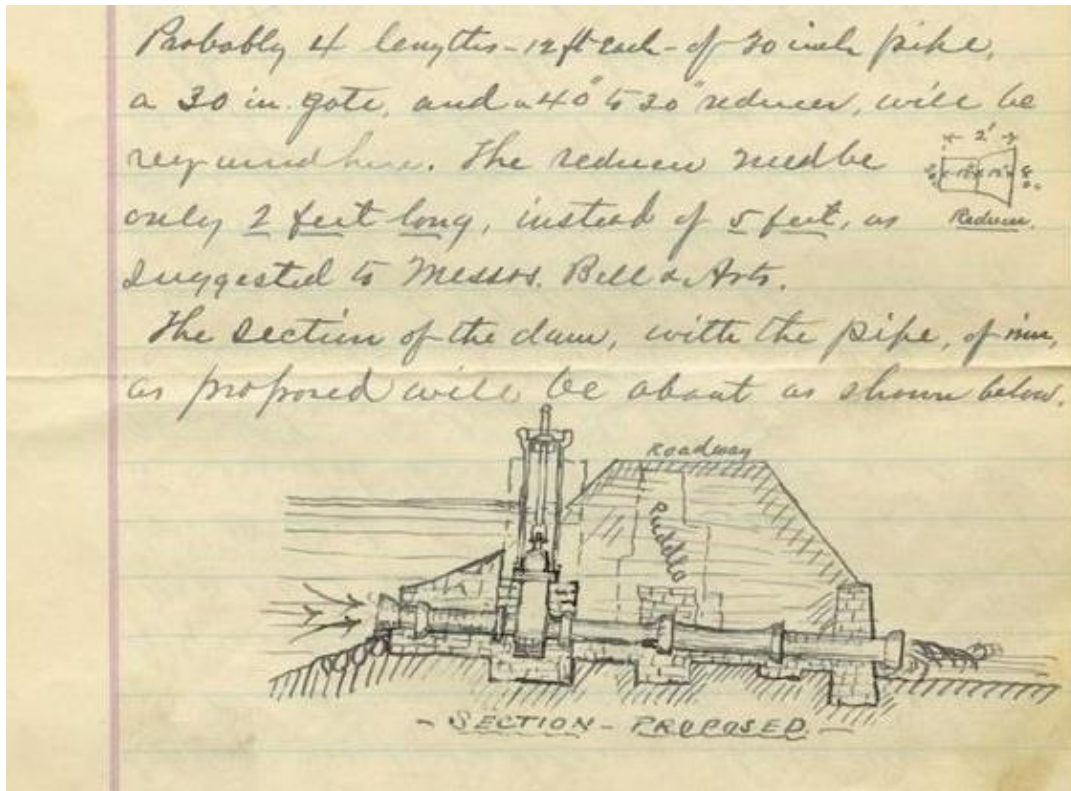 Probably 4 lengths - 12 ft each - of 30 inch pipe,
a 30 in. gate, and a 40" to 30" reducer, will be
required here. The reducer need be
2'
only 2 feet long, instead of 5 feet, as
Reducer.
suggested to Messrs. Bell & Arts.
The section of the dam, with the pipe, of
as proposed will be about as shown below.
Roadway
Puddle
- SECTION - PROPOSED -